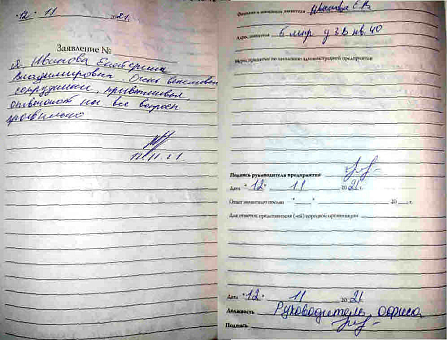 "12" 11 2021
Заявление №
Я Иванова Екатерина
Владимировна. Очень вежливые
сотрудники, приветливые,
на все вопросы
12.11.21
Фамилия и инициалы заявителя Иванова Е.В.
Адрес заявителя 6 мкр д 2в кв 40
Меры, принятые по заявлению администрацией предприятия
Подпись руководителя предприятия
Дата "12" 11 2021.
Ответ заявителю послан " " 20 г.
Для отметок представителя (-ей) торговой организации
Дата "12" 11 2021
Должность Руководитель офиса
Подпись